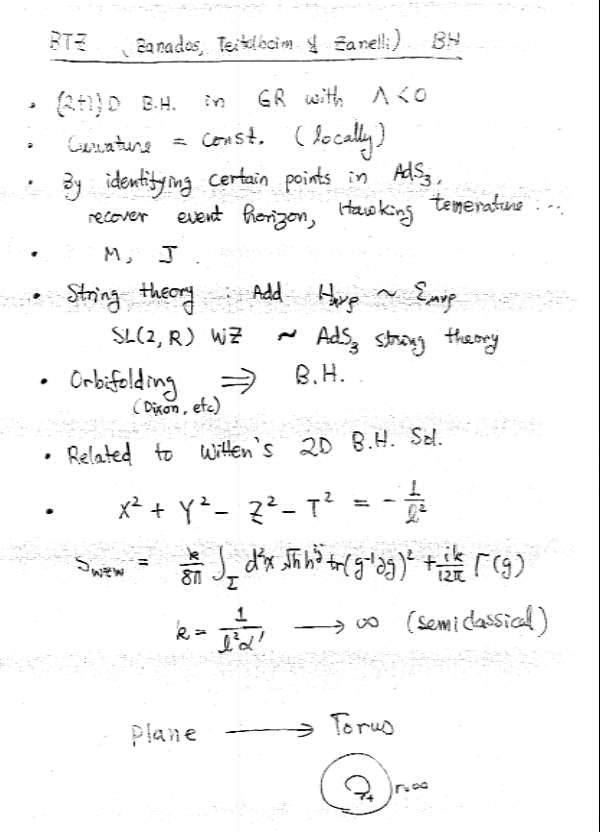 BTZ (Banados, Teitelboim & Zanelli) BH
• (2+1)D B.H. in GR with Λ<0
• Curvature = const. (locally)
• By identifying certain points in AdS₃,
recover event horizon, Hawking temerature ...
• M, J.
• String theory : Add
SL(2, R) WZ ~ AdS₃ string theory
• Orbifolding ⇒ B.H.
(Dixon, etc)
• Related to Witten's 2D B.H. Sol.
• X² + Y² − Z² − T² = − 1/l²
S_wzw = k/8π ∫_Σ d²x √h h^{ij} tr(g⁻¹∂g)² + ik/12π Γ(g)
k = 1/l²α' → ∞ (semiclassical)
Plane → Torus
r=∞